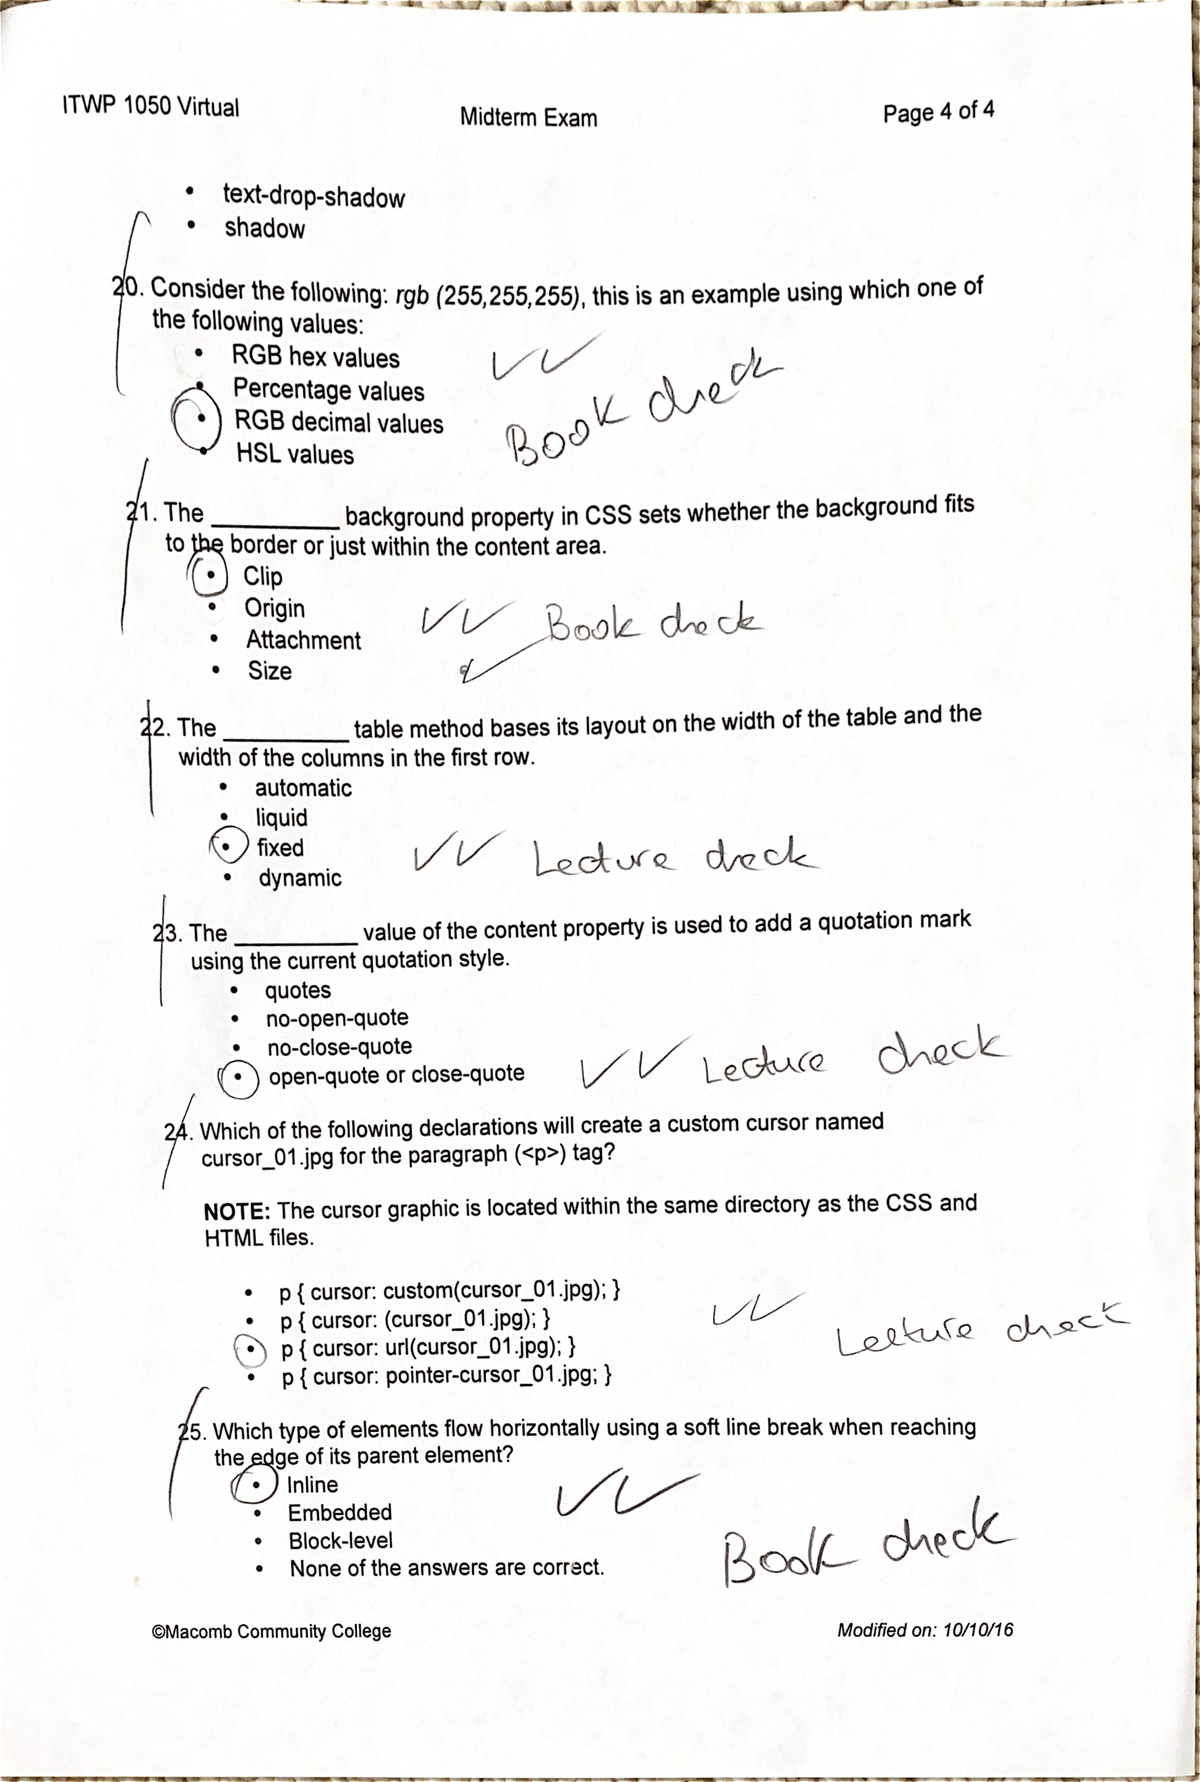 ITWP 1050 Virtual Midterm Exam Page 4 of 4
• text-drop-shadow
• shadow
20. Consider the following: rgb (255,255,255), this is an example using which one of
the following values:
• RGB hex values
• Percentage values
• RGB decimal values
• HSL values
✓✓ Book check
21. The __________ background property in CSS sets whether the background fits
to the border or just within the content area.
• Clip
• Origin
• Attachment
• Size
✓✓ Book check
22. The __________ table method bases its layout on the width of the table and the
width of the columns in the first row.
• automatic
• liquid
• fixed
• dynamic
✓✓ Lecture check
23. The __________ value of the content property is used to add a quotation mark
using the current quotation style.
• quotes
• no-open-quote
• no-close-quote
• open-quote or close-quote
✓✓ Lecture check
24. Which of the following declarations will create a custom cursor named
cursor_01.jpg for the paragraph (<p>) tag?
NOTE: The cursor graphic is located within the same directory as the CSS and
HTML files.
• p { cursor: custom(cursor_01.jpg); }
• p { cursor: (cursor_01.jpg); }
• p { cursor: url(cursor_01.jpg); }
• p { cursor: pointer-cursor_01.jpg; }
✓✓ Lecture check
25. Which type of elements flow horizontally using a soft line break when reaching
the edge of its parent element?
• Inline
• Embedded
• Block-level
• None of the answers are correct.
✓✓ Book check
©Macomb Community College Modified on: 10/10/16